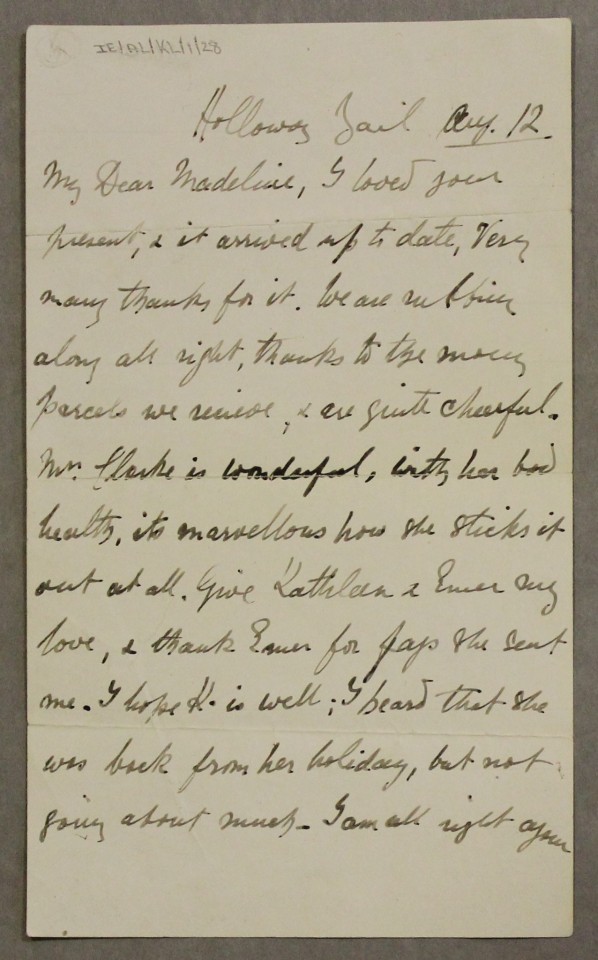 IE/AL/KL/1/28
Holloway Jail Aug. 12.
My Dear Madeline, I loved your
present, & it arrived up to date, Very
many thanks for it. We are rubbing
along all right, thanks to the many
parcels we recieve, & are quite cheerful.
Mrs. Clarke is wonderful, with her bad
health, its marvellous how she sticks it
out at all. Give Kathleen & Emer my
love, & thank Emer for fags she sent
me. I hope K. is well; I heard that she
was back from her holiday, but not
going about much. I am all right again